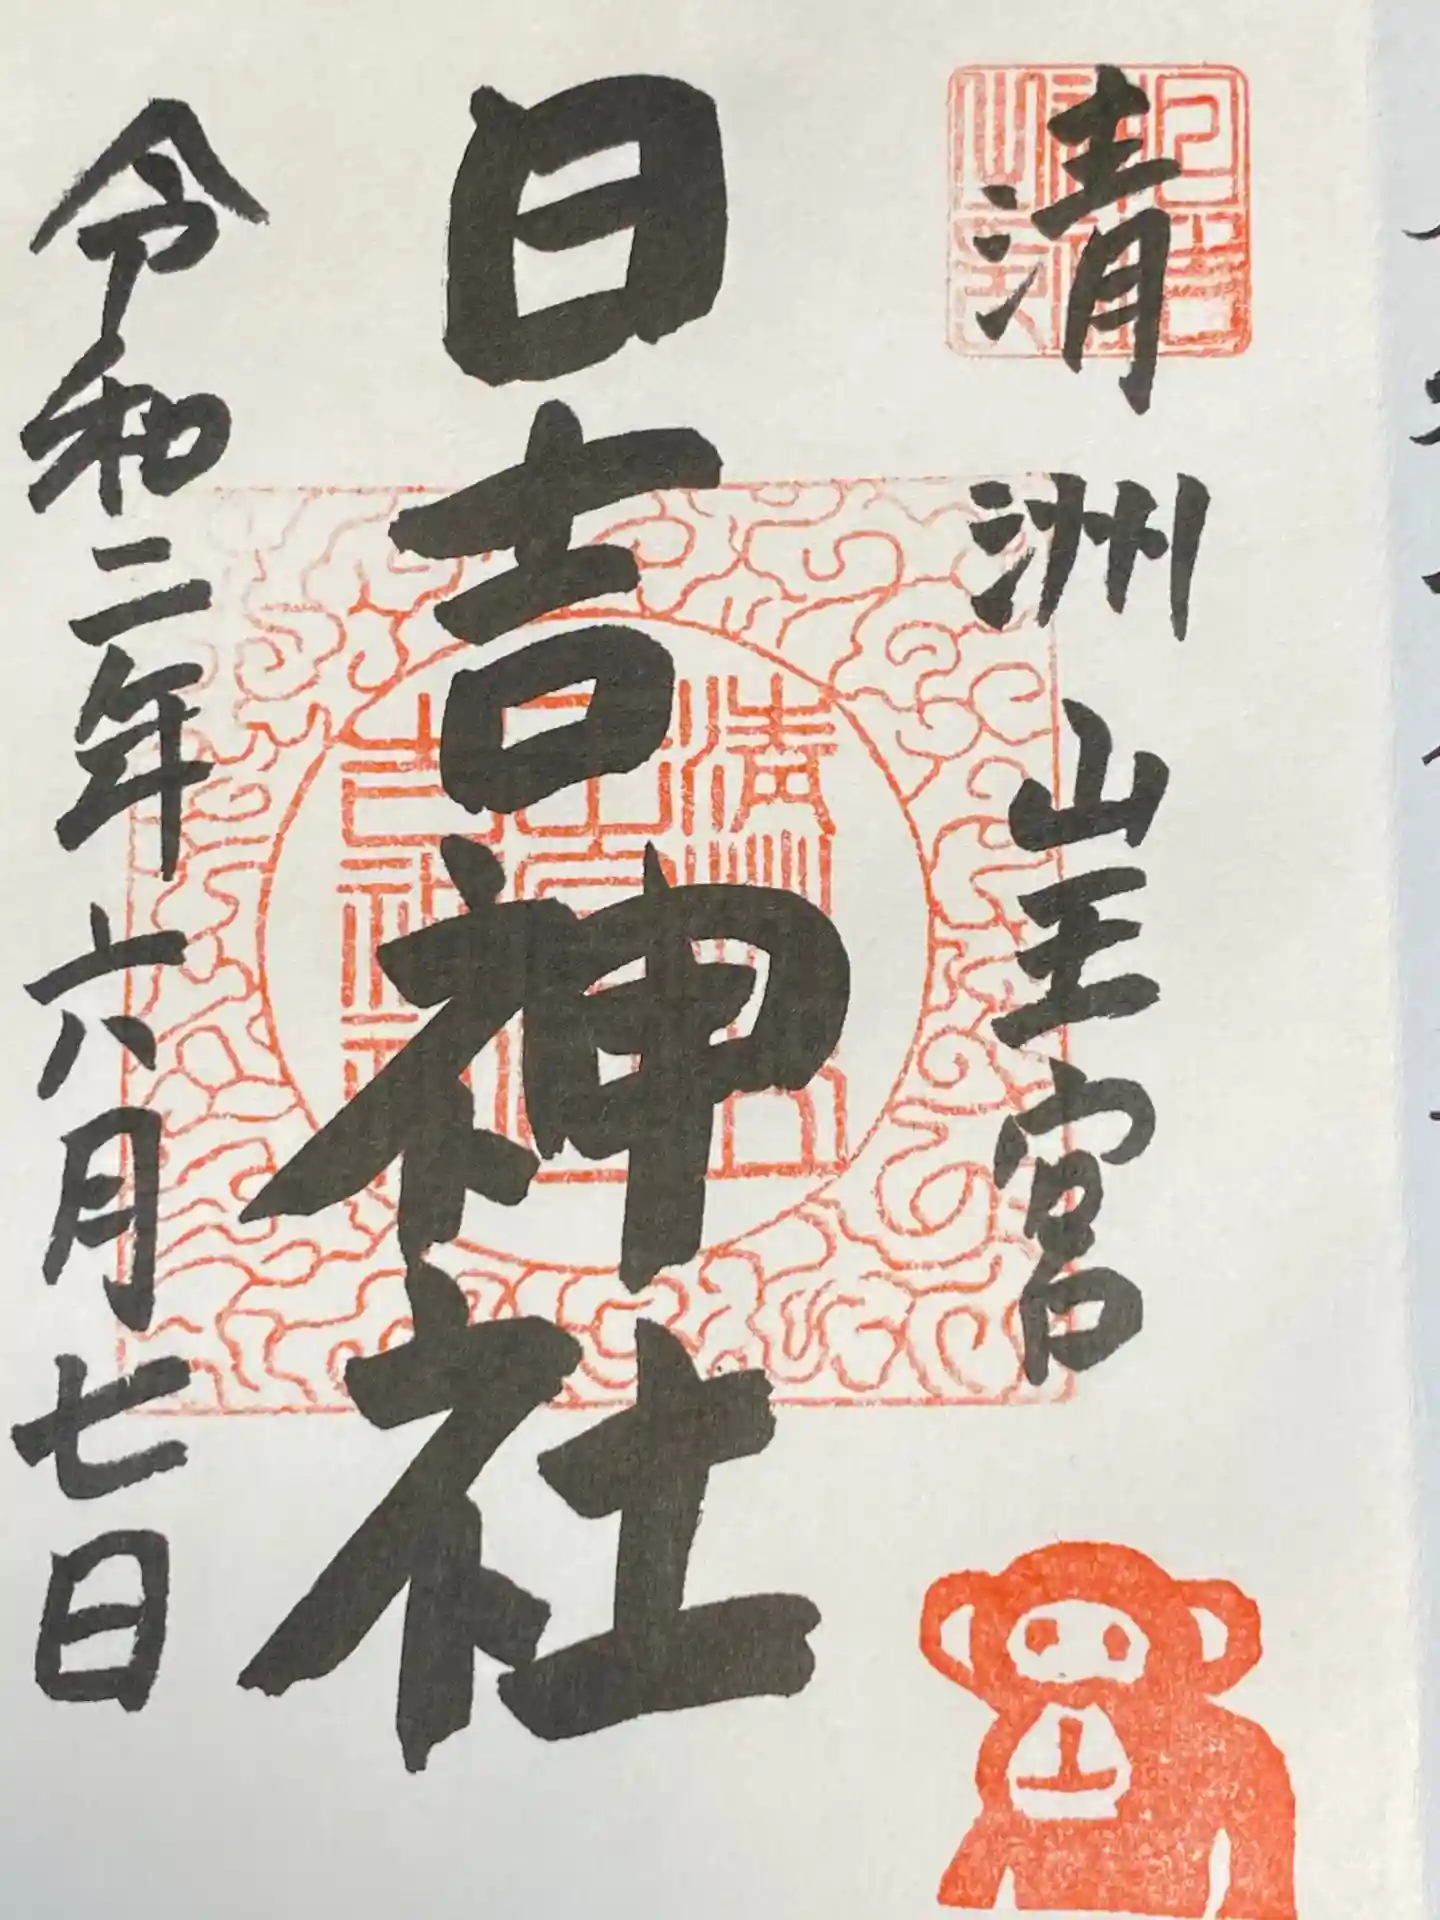 清洲山王宮
日吉神社
令和二年六月七日